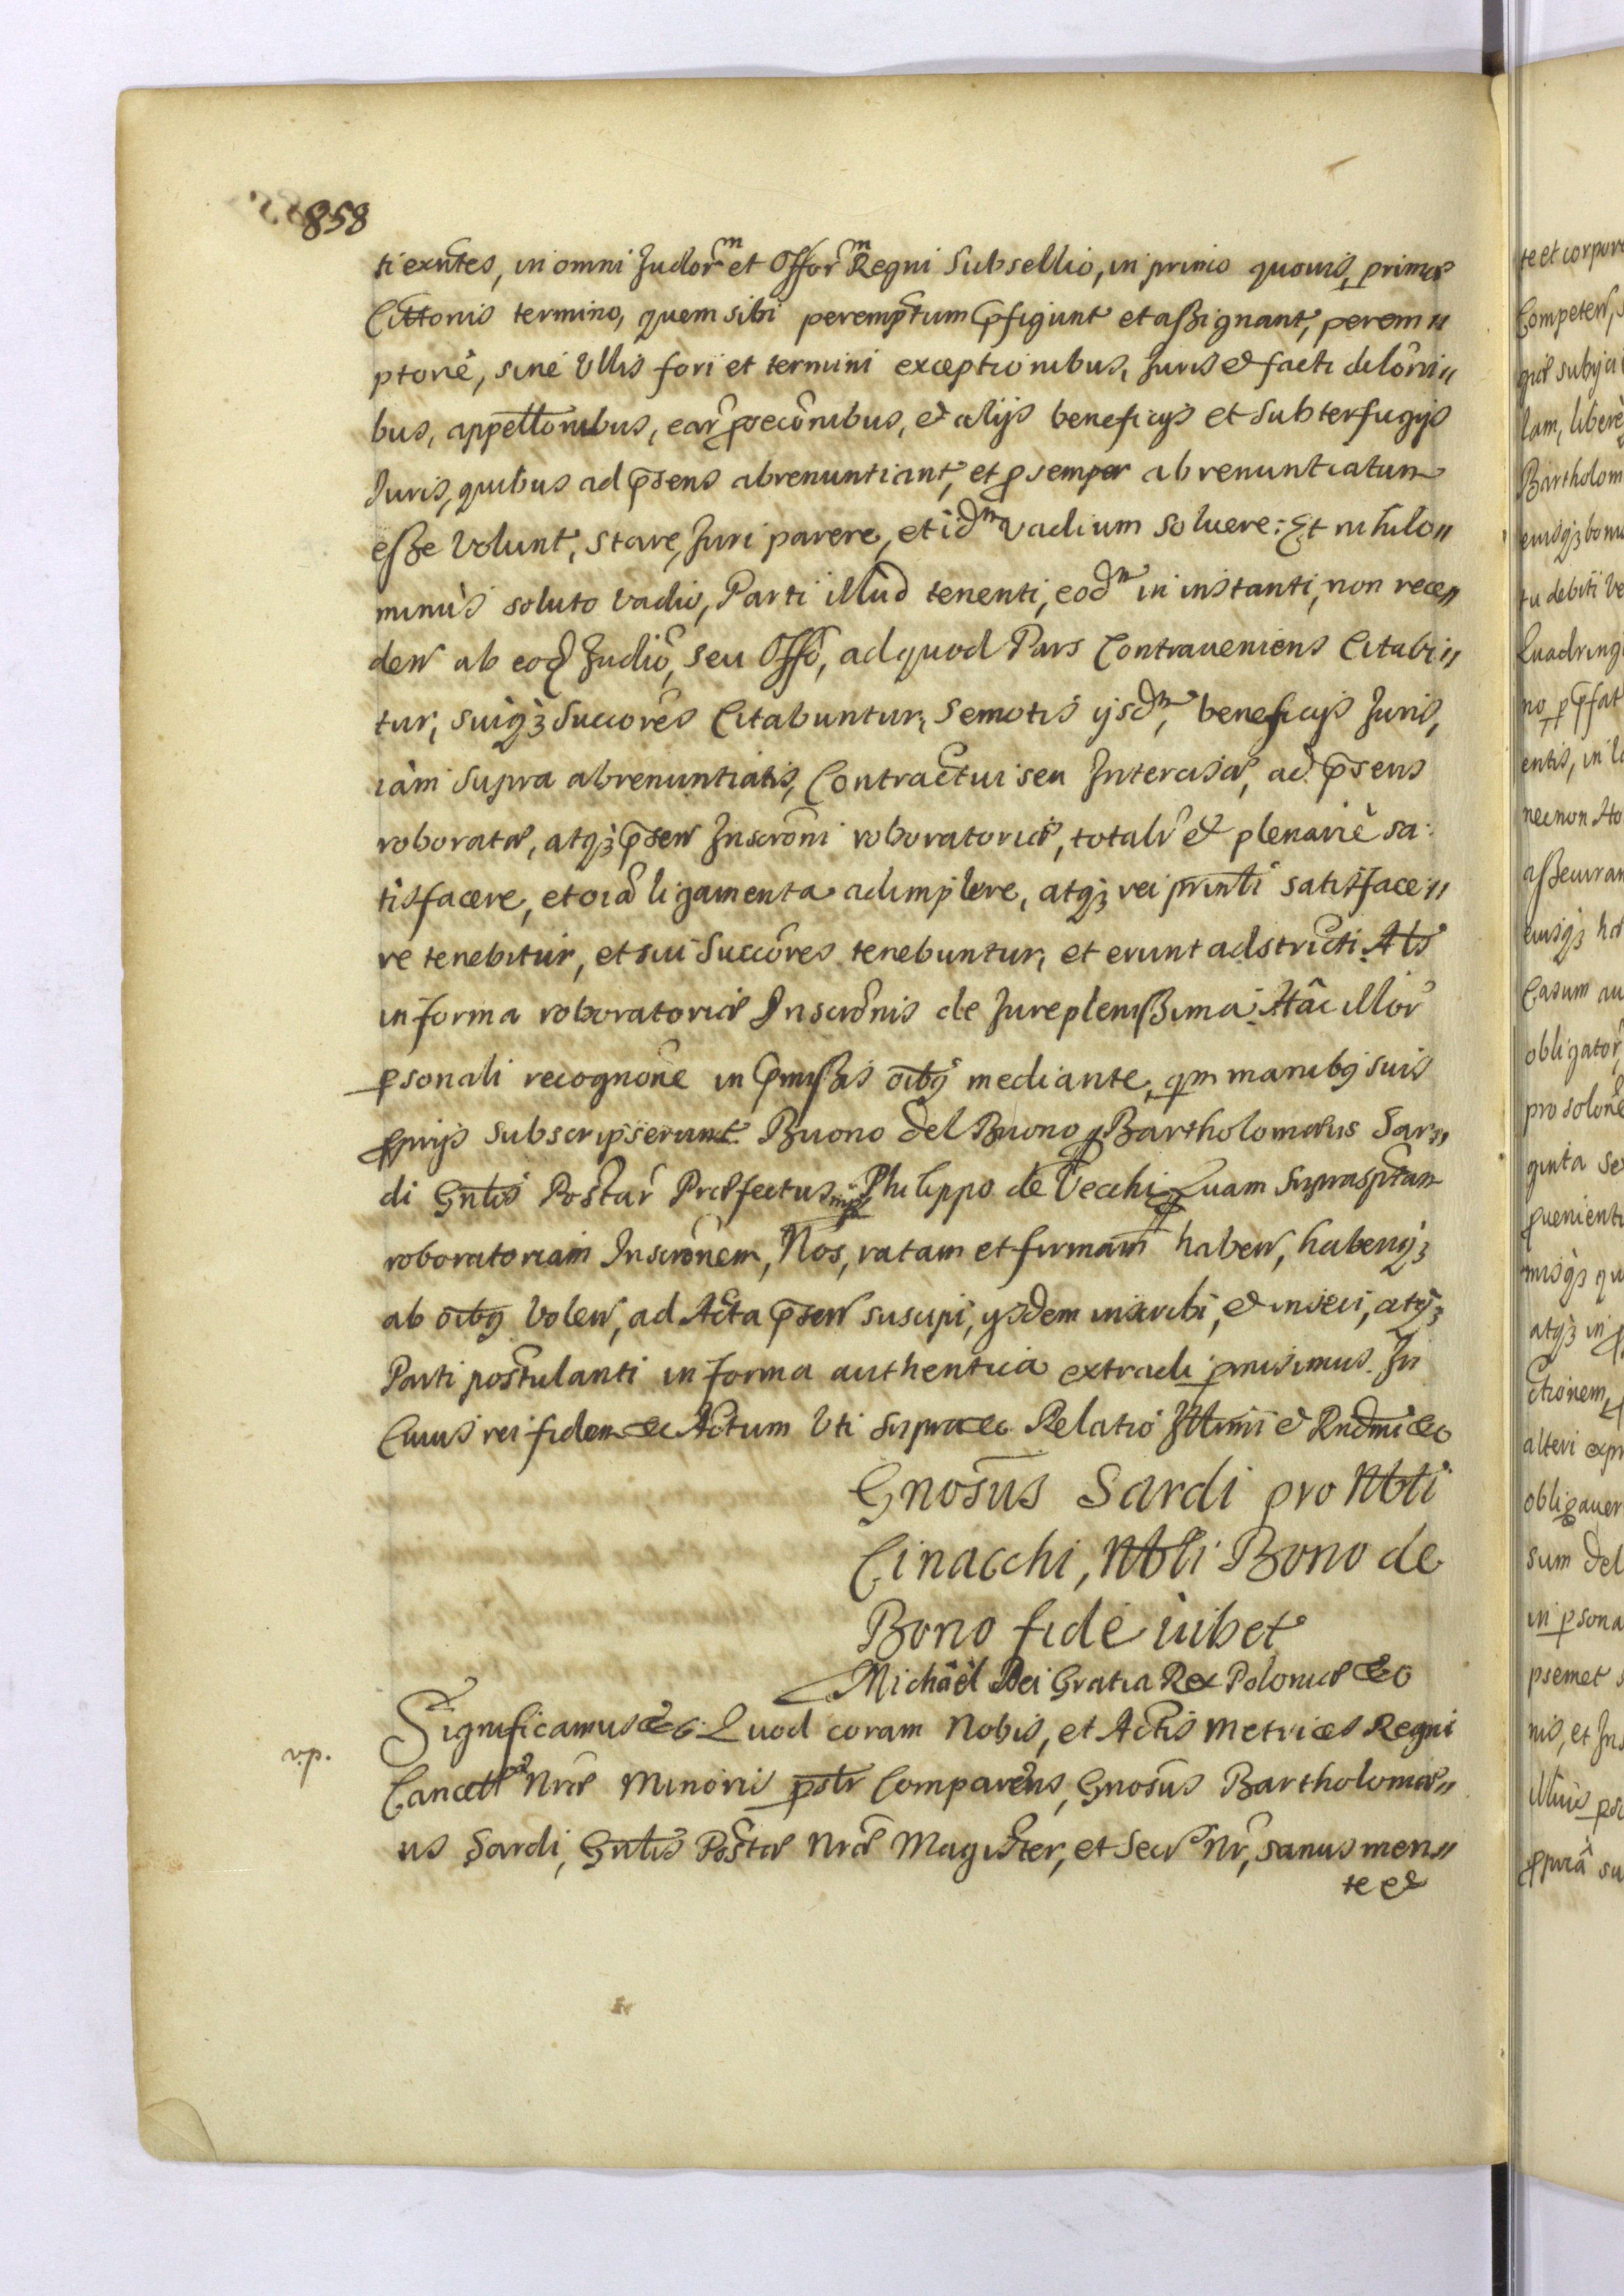 858
ti exñtes, in omni Judorm et Ofform Regni Subsellio, in primo quouis, primæ
Cittonis termino, quem sibi peremptum p̃figunt et aßignant, perem〃
ptoriè, sine Vllis fori et termini exceptionibus, Juris et facti dilõni〃
bus, appellõnibus, ear̃ p̃secõnibus, et alijs beneficijs et Subterfugijs
Juris, quibus ad p̃sens abrenuntiant, et p semper abrenuntiatum
eße Volunt, stare, Juri parere, et idm Vadium soluere; Et nihilo〃
minùs soluto Vadio, Parti illud tenenti, eodm in instanti, non rece〃
den̄ ab eod Judiõ, seu Offõ, ad quod Pars Contraueniens Citabi〃
tur, suiq3 Succõres Citabuntur, Semotis ijsdm, beneficijs Juris,
iàm Supra abrenuntiatis, Contractui seu Intercisæ, ad p̃sens
roboratæ, atq3 p̃sen̄ Inscrõni roboratoriæ, totalr̃ et plenariè sa:
tisfacere, et oĩa ligamenta adimplere, atq3 rei prinli satisface〃
re tenebitur, et sui Succõres tenebuntur, et erunt adstricti. Als
in forma roboratoriæ Inscrõnis de Jure plenißima. Hâc illor̃
psonali recognõne in p̃mißis oĩbq mediante, qm manibq suis
pprijs Subscripserunt. Buono del Buono Bartholomæus Sar〃
di Gñlis Postar̃ Præfectus mp Philippo de Vecchi Quam Suprascptam
roboratoriam Inscrõnem, Nos, ratam et firmam haben̄, haberiq3
ab oĩbq Volen̄, ad Acta p̃sen̄ suscipi, ijsdem inscribi, et inseri, atq3
Parti postulanti in forma authentica extradi pmisimus. In
Cuius rei fidem &c Actum Vti Supra &c. Relatio Illmi et Rndmi &c
Gnosus Sardi pro Nbli
Cinacchi, Nbli Bono de
Bono fide iubet
Michaël Dei Gratia Rex Poloniæ &c
Significamus &c. Quod coram Nobis, et Actis Metrices Regni
v.p.
Cancellæ Nræ Minoris pslr Comparens, Gnosus Bartholomæ〃
us Sardi, Gñlis Postæ Nræ Magister, et Secr̃ Nr̃, sanus men〃
te et